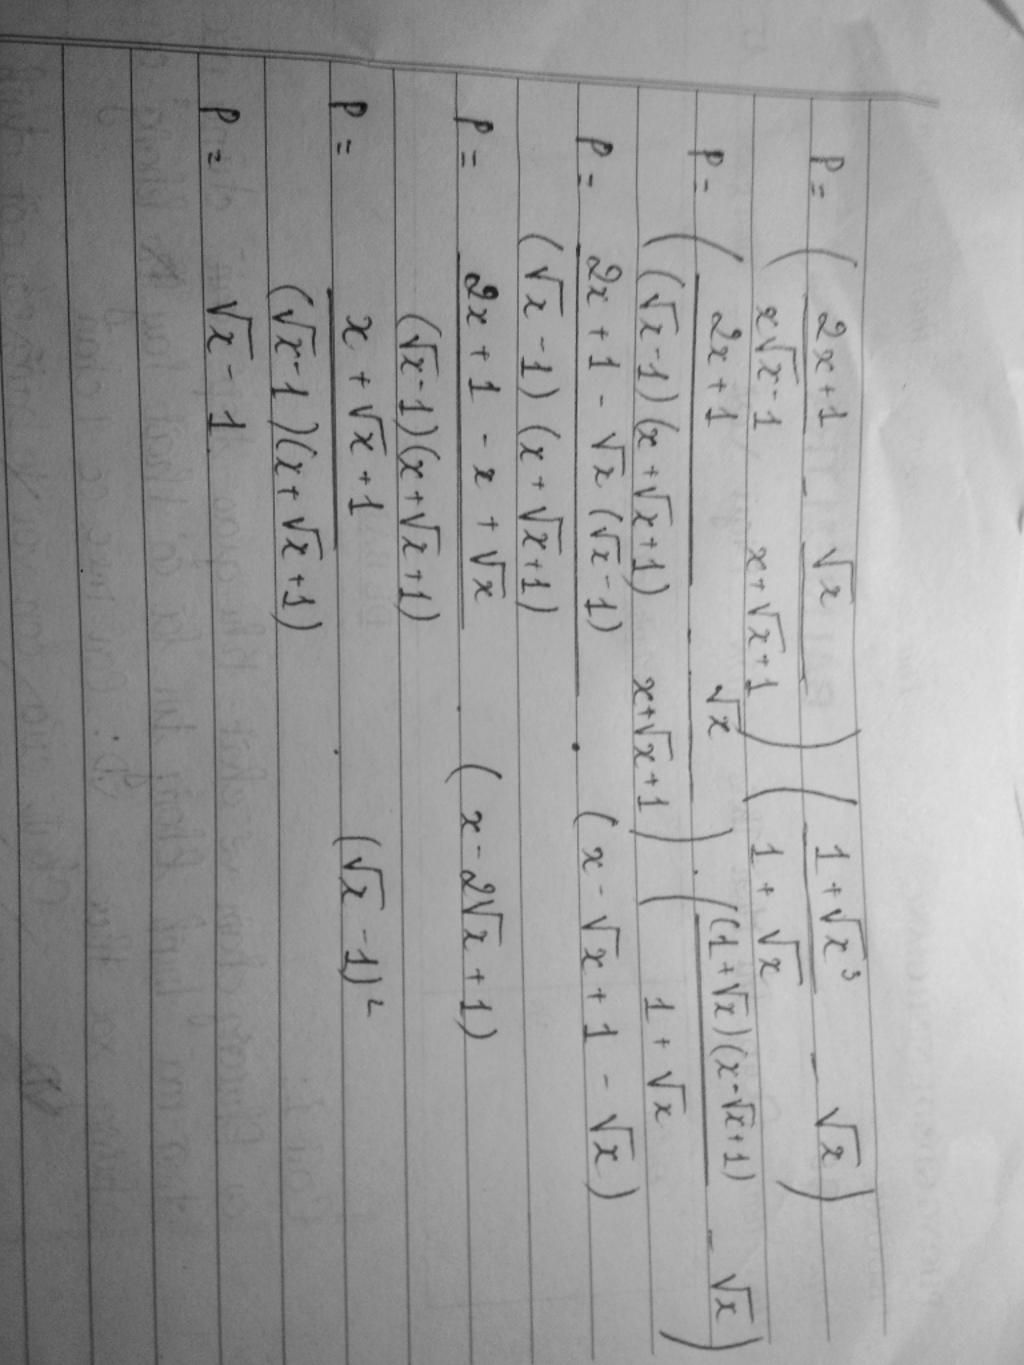 P = ( \frac{2x+1}{x\sqrt{x}-1} - \frac{\sqrt{x}}{x+\sqrt{x}+1} ) ( \frac{1+\sqrt{x}^3}{1+\sqrt{x}} - \sqrt{x} )
P = ( \frac{2x+1}{(\sqrt{x}-1)(x+\sqrt{x}+1)} - \frac{\sqrt{x}}{x+\sqrt{x}+1} ) . ( \frac{(1+\sqrt{x})(x-\sqrt{x}+1)}{1+\sqrt{x}} - \sqrt{x} )
P = \frac{2x+1-\sqrt{x}(\sqrt{x}-1)}{(\sqrt{x}-1)(x+\sqrt{x}+1)} . (x-\sqrt{x}+1-\sqrt{x})
P = \frac{2x+1-x+\sqrt{x}}{(\sqrt{x}-1)(x+\sqrt{x}+1)} . (x-2\sqrt{x}+1)
P = \frac{x+\sqrt{x}+1}{(\sqrt{x}-1)(x+\sqrt{x}+1)} . (\sqrt{x}-1)^2
P = \sqrt{x}-1